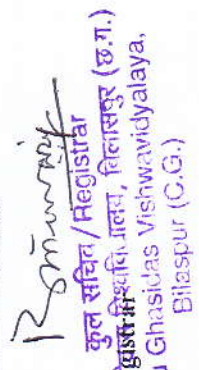 कुल सचिव / Registrar
विश्वविद्यालय, बिलासपुर (छ.ग.)
gistrar
Ghasidas Vishwavidyalaya,
Bilaspur (C.G.)